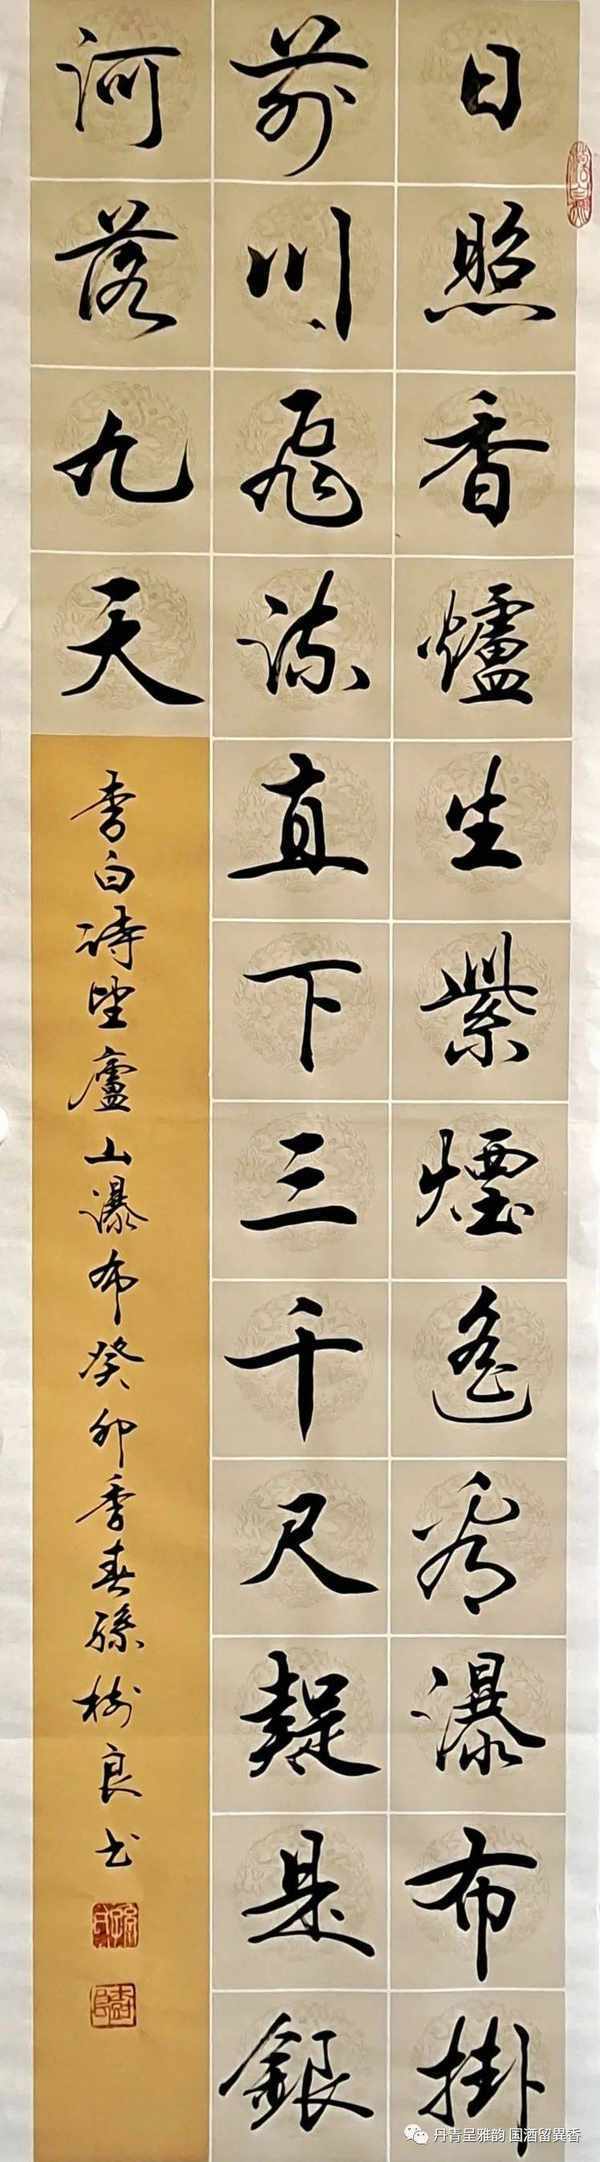 日照香爐生紫煙遙看瀑布掛
前川飛流直下三千尺疑是銀
河落九天
李白詩望廬山瀑布癸卯季春孫樹良书
丹青呈雅韵 国酒留異香